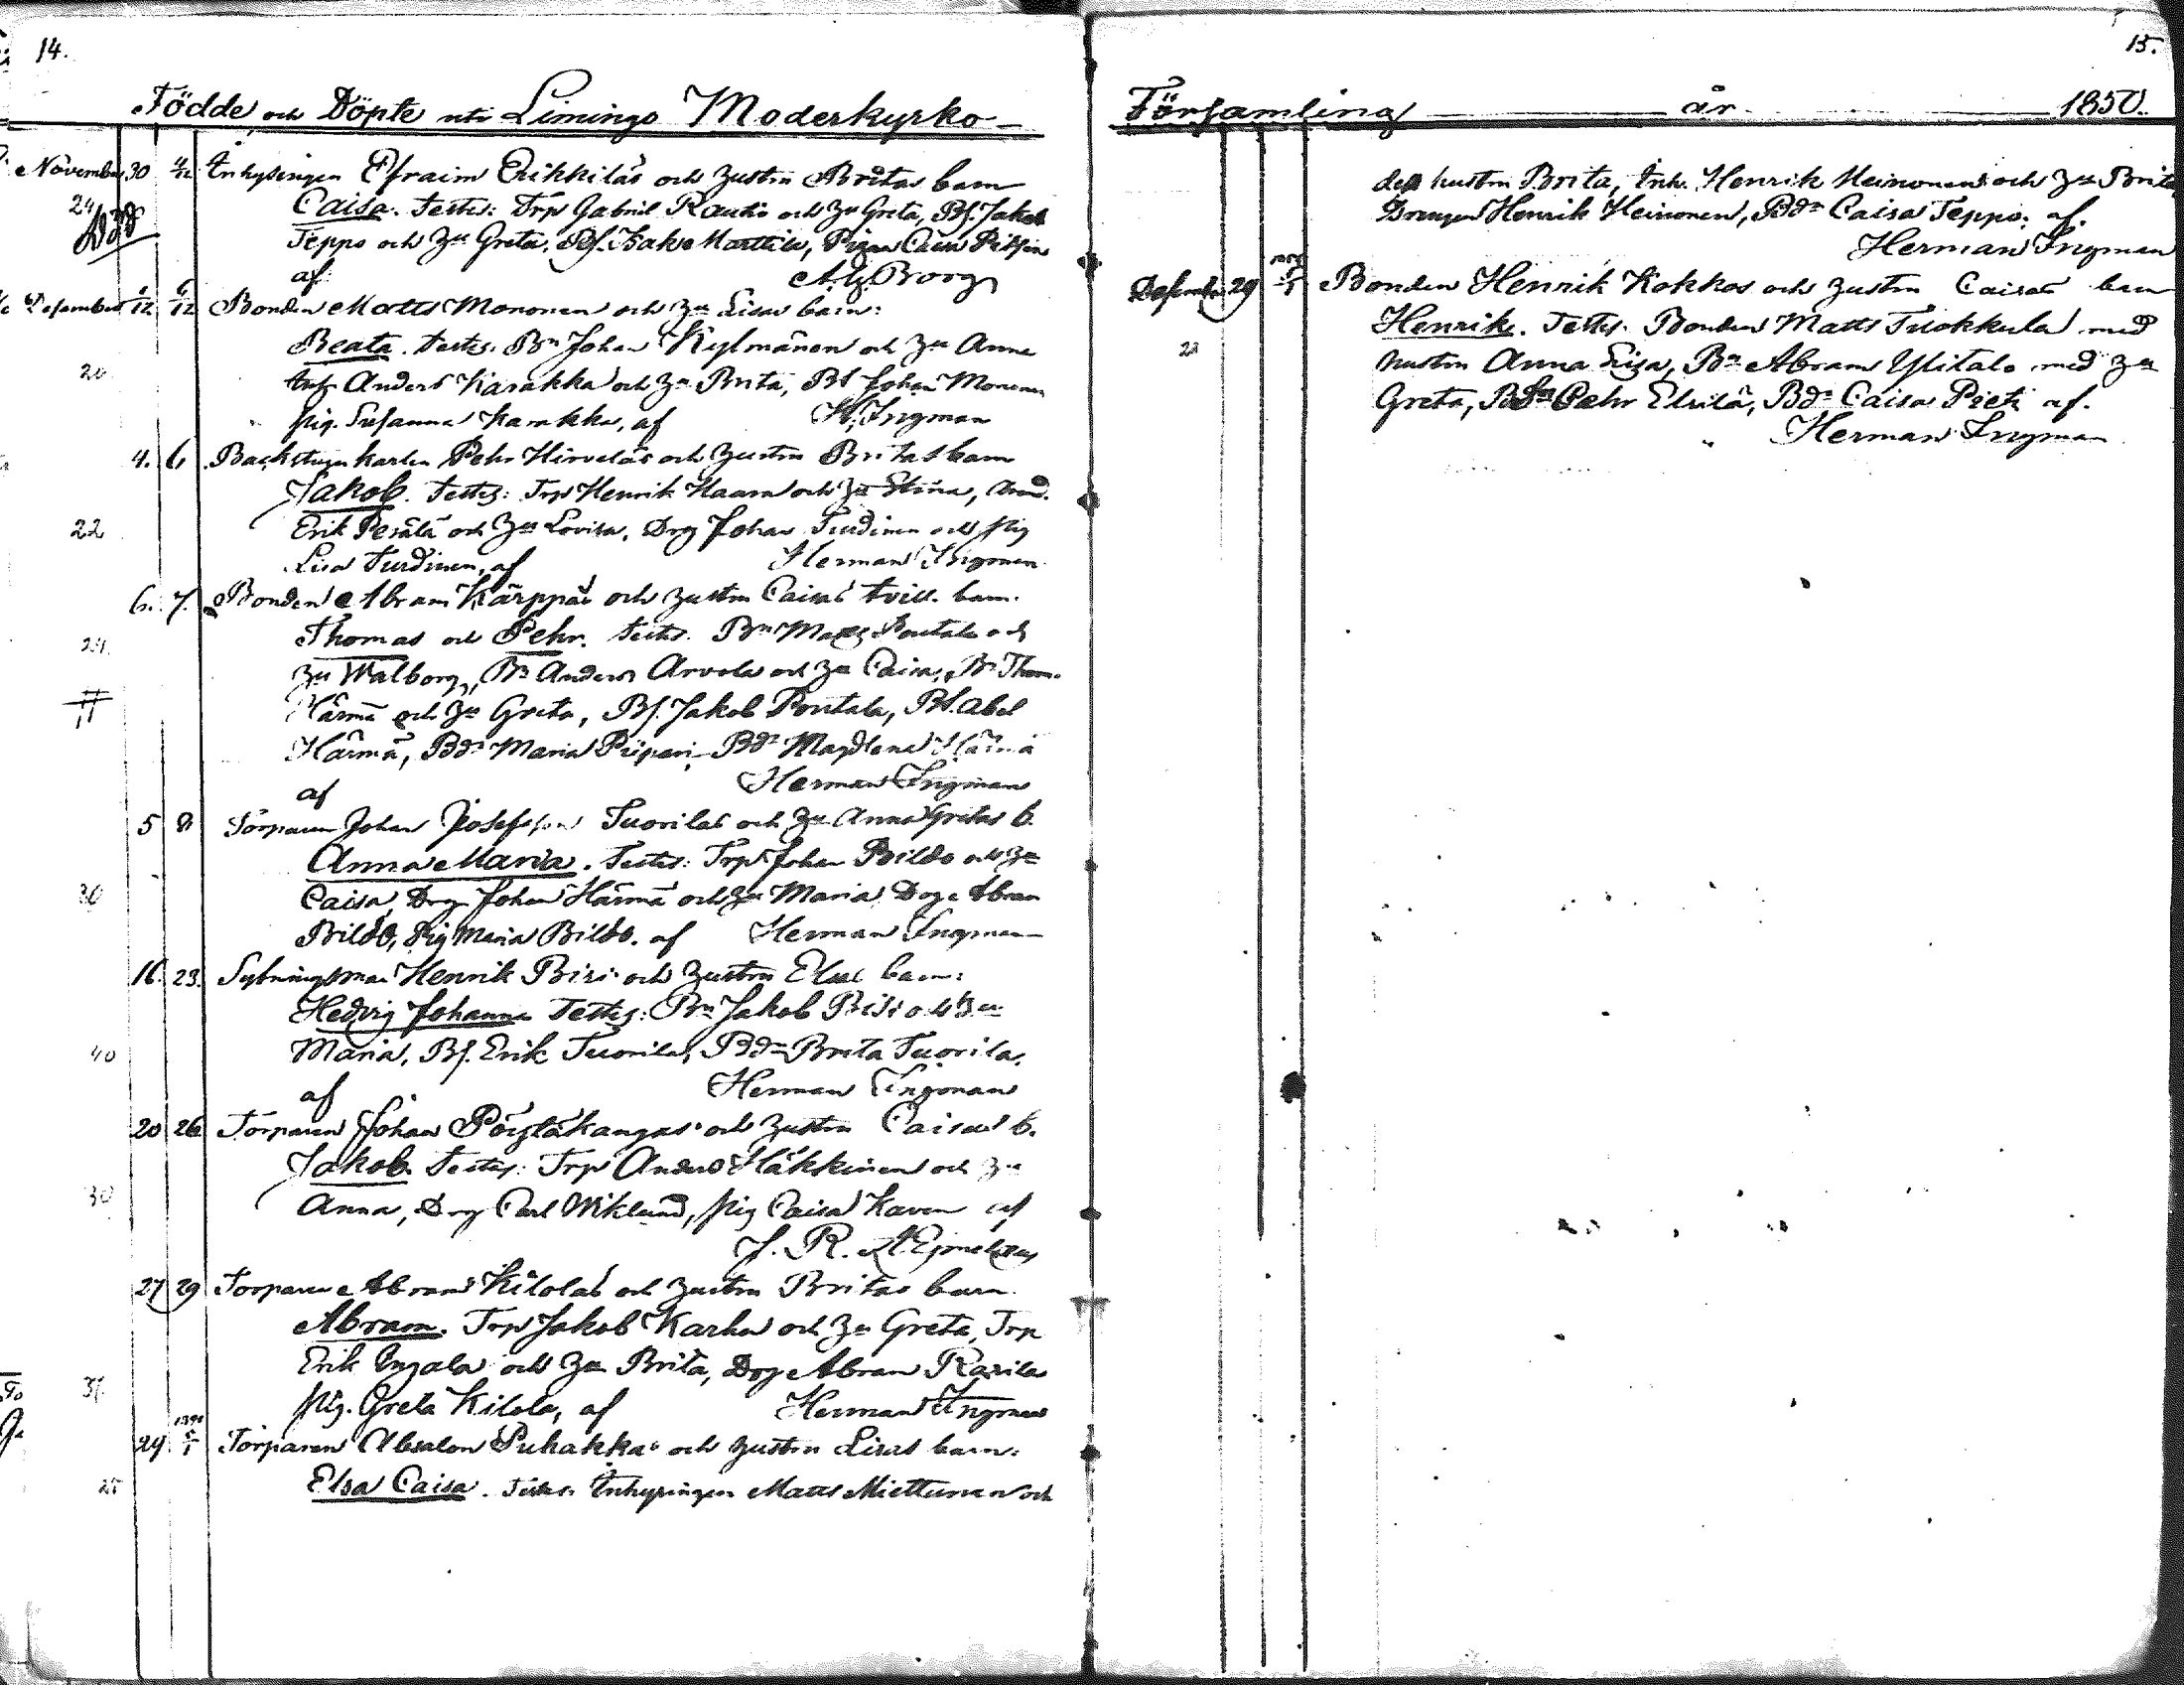 14.
Födde och Döpte uti Limingo Moderkyrko-
November 30 4/12 Inhysingen Efraim Erikkiläs och hustru Britas barn
24 Caisa. Testes: Trp Gabriel Rautio och hu Greta, Bs. Jakob
Död Teppo och hu Greta, Bs. Isak Marttila, Pigan Caisa
af A. G. Borg
December 1/12 6/12 Bonden Matts Mononen och hu Lisas barn:
Beata. testes. Bn Johan Kylmänen och hu Anna
20 Inh Anders Karakka och hu Brita, Bs Johan Mononen
pig. Susanna Karakka, af H. Ingman
4. 6 Backstugukarlen Pehr Hirveläs och hustru Britas barn
Jakob. Testes: Trp Henrik Haara och hu Stina,
22 Erik Perälä och hu Lovisa, Drg Johan Turdinen och pig
Lisa Turdinen, af Herman Ingman
6. 7. Bonden Abram Kärppäs och hustru Caisas tvill. barn.
24. Thomas och Pehr. testes. Bn Matts Pontala och
hu Walborg, Bn Anders Arvola och hu Caisa, Bn Thom.
Härmä och hu Greta, Bs. Jakob Pontala, Bs. Abel
Härmä, Bdr Maria Piipari, Bdr Magdlena Härmä
af Herman Ingman
5 8 Torparen Johan Josefsson Tuorilas och hu Anna Gretas b.
Anna Maria. Testes: Trp Johan Bildo och hu
30 Caisa, Drg Johan Härmä och hu Maria Drg Abram
Bildo, Pig Maria Bildo. af Herman Ingman
16. 23. Sytningsman Henrik Piri och hustru Elsas barn:
Hedvig Johanna Testes: Bn Jakob och hu
40 Maria, Bs. Erik Tuorila, Bdr Brita Tuorila,
af Herman Ingman
20 26 Torparen Johan Pöytäkangas och hustru Caisas b.
Jakob. Testes: Trp Anders Häkkinen och hu
30 Anna, Drg Carl Wiklund, pig Caisa Karen af
J. R.
27 29 Torparen Abram Kilolas och hustru Britas barn
Abram. Trp Jakob Karhu och hu Greta, Trp
Erik och hu Brita, Drg Abram Rasila
37. pig. Greta Kilola, af Herman Ingman
29. Torparen Absalon Puhakkas och hustru Lisas barn:
25 Elsa Caisa. Testes Inhysingen Matts Miettunen och
15.
Församling år 1850.
dess hustru Brita, Inh. Henrik Heinonen och hu Brita
Drengen Henrik Heinonen, Bdr Caisa Teppo. af.
Herman Ingman
December 29 Bonden Henrik Kokkos och hustru Caisas barn
Henrik. Testes. Bonden Matts Tuokkula med
hustru Anna Lisa, Bn Abram Ylitalo med hu
Greta, Bdsn Pehr Elsilä, Bdr Caisa Pieti af.
Herman Ingman